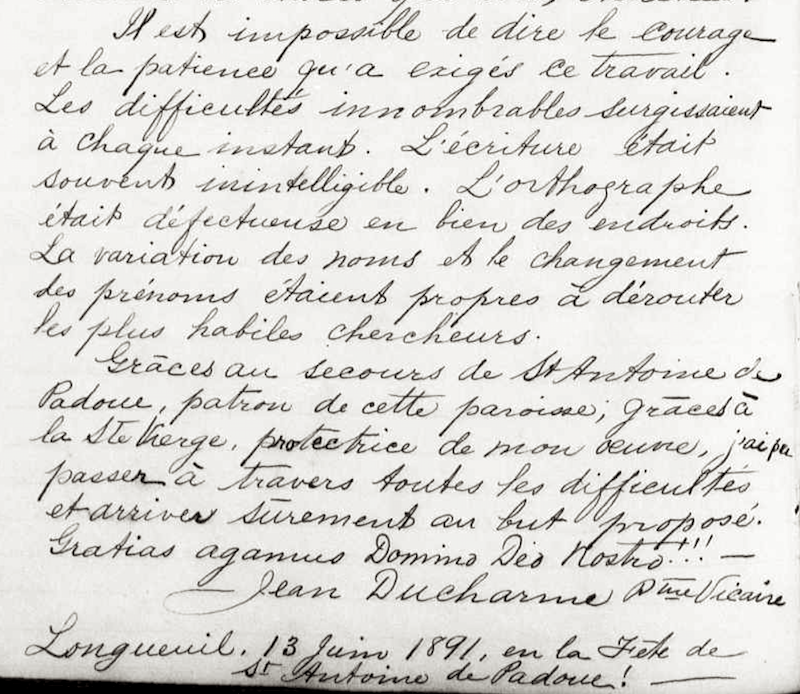 Il est impossible de dire le courage
et la patience qu'a exigés ce travail.
Les difficultés innombrables surgissaient
à chaque instant. L'écriture était
souvent inintelligible. L'orthographe
était défectueuse en bien des endroits.
La variation des noms et le changement
des prénoms étaient propres à dérouter
les plus habiles chercheurs.
Grâces au secours de St Antoine de
Padoue, patron de cette paroisse; grâces à
la Ste Vierge, protectrice de mon œuvre, j'ai pu
passer à travers toutes les difficultés
et arriver sûrement au but proposé.
Gratias agamus Domino Deo Nostro!!! —
Jean Ducharme Ptre Vicaire
Longueuil, 13 Juin 1891, en la Fête de
St Antoine de Padoue! —